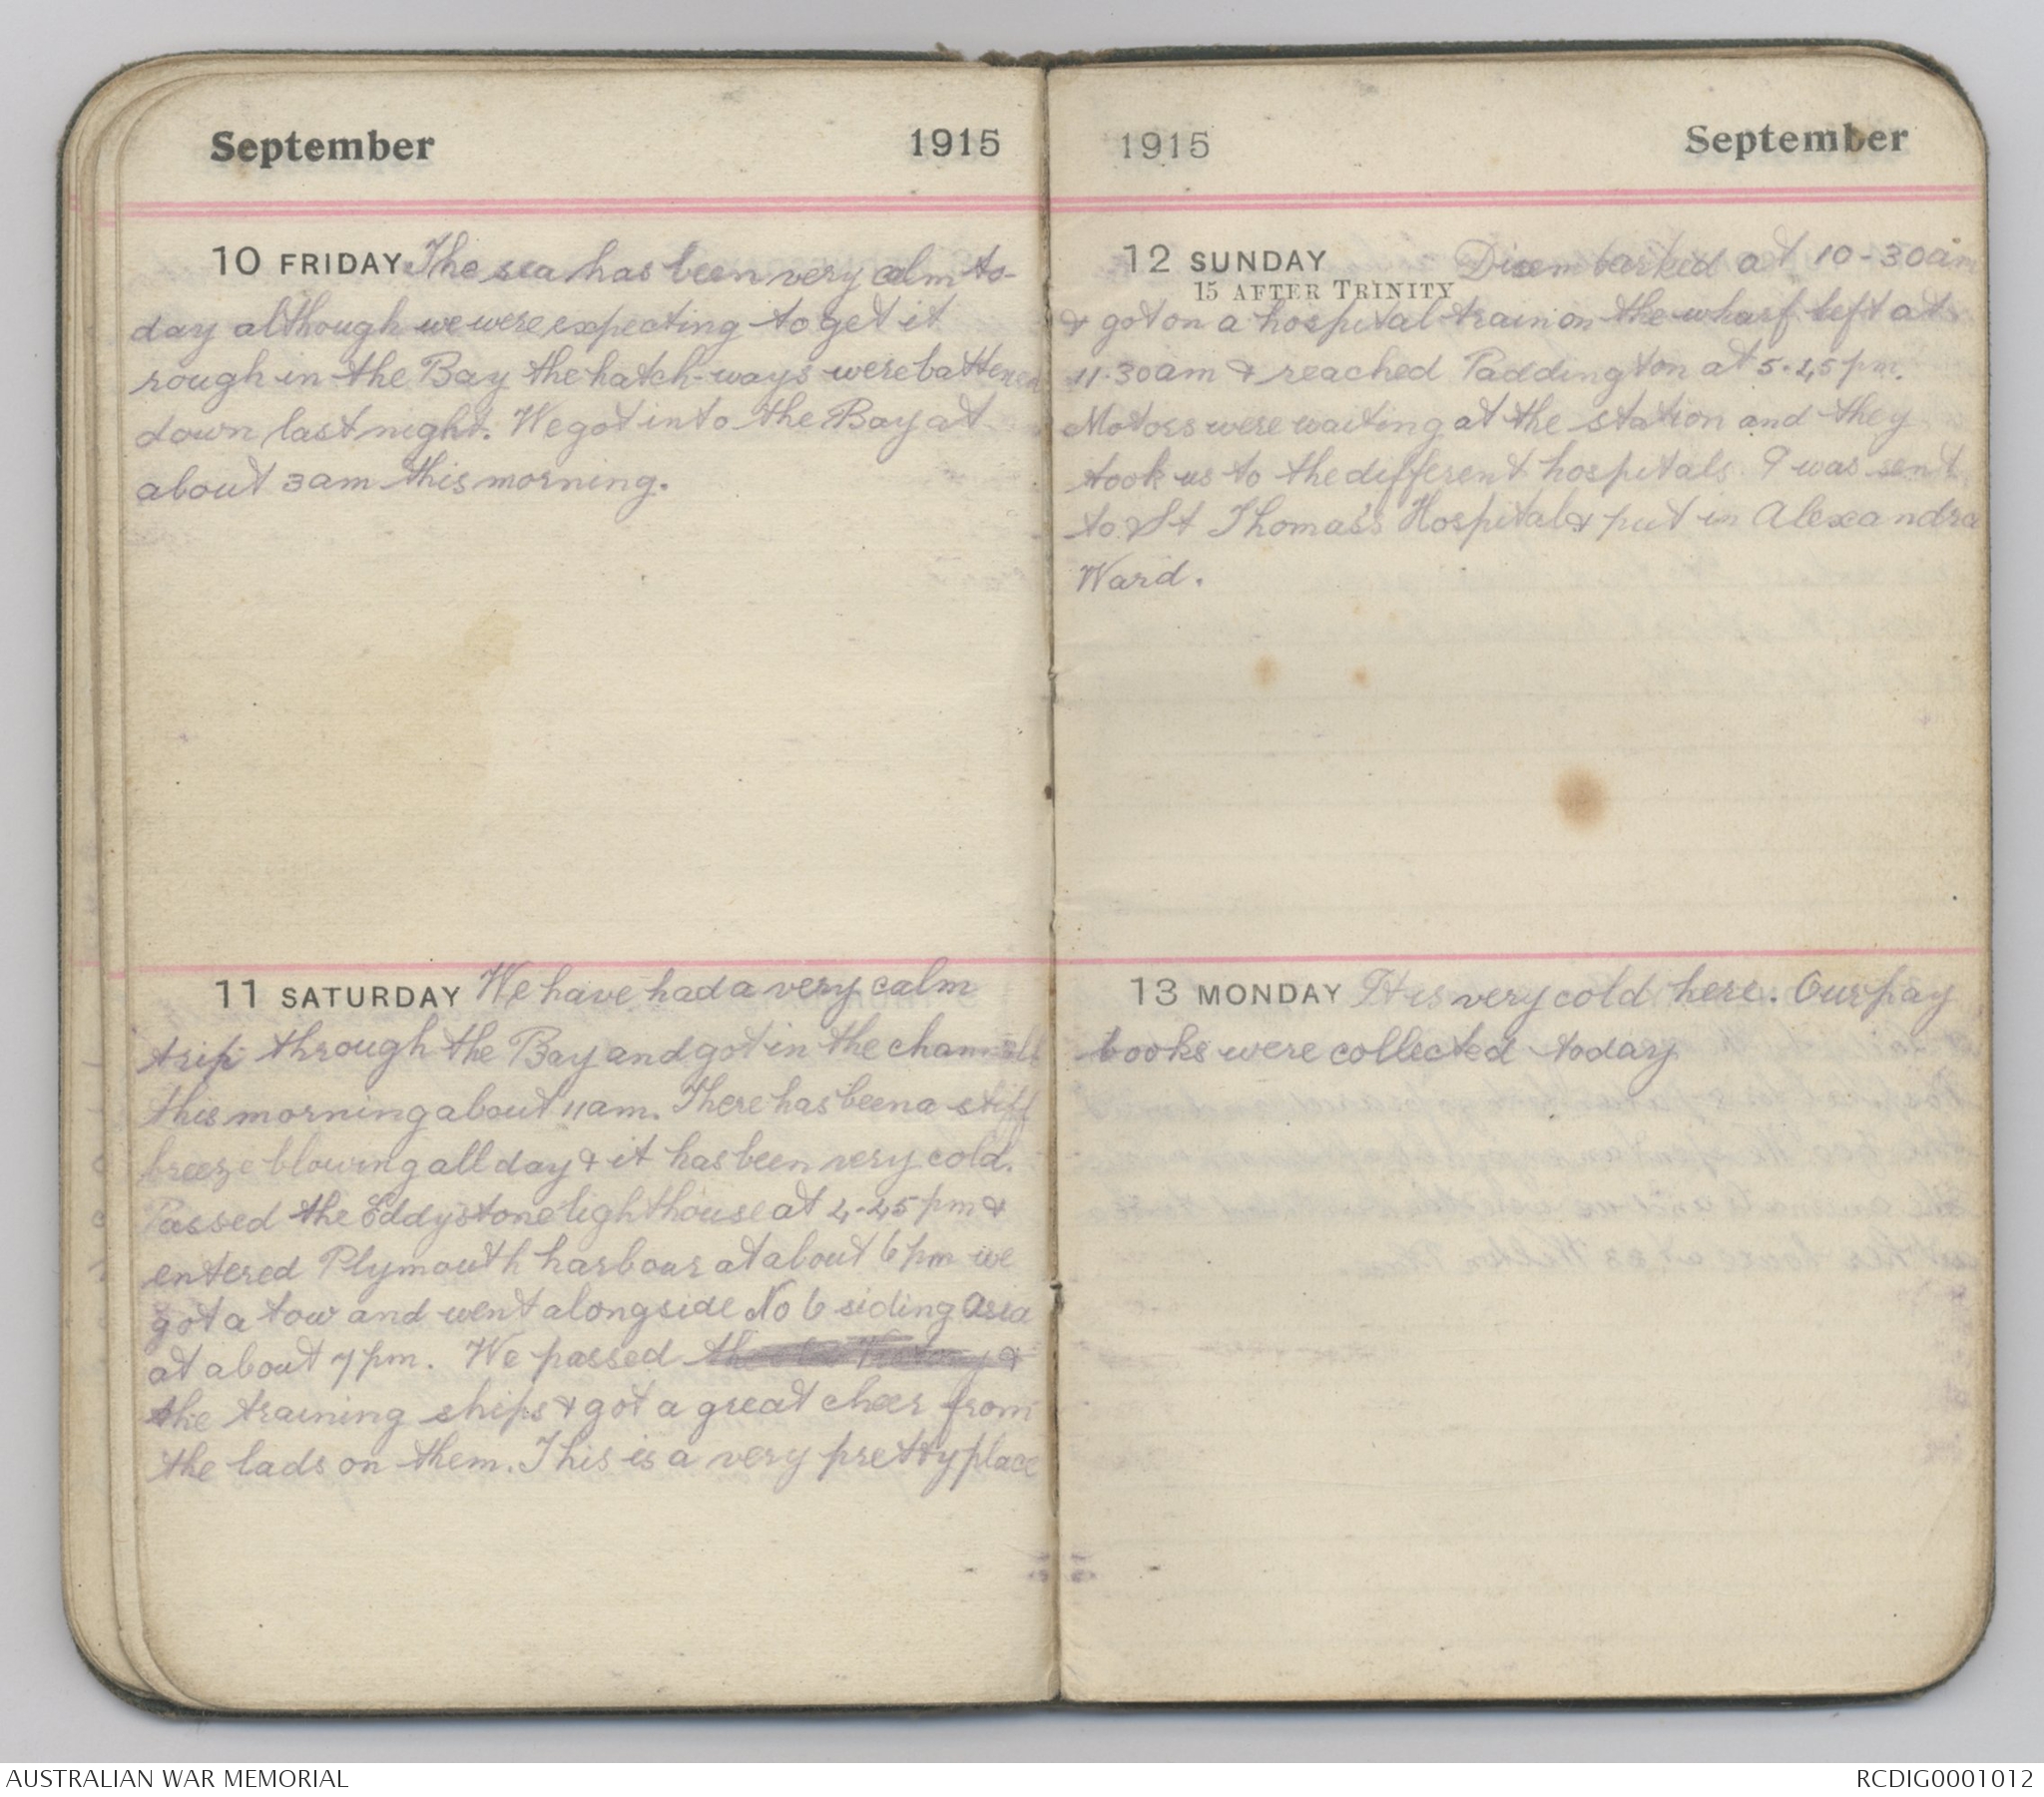 September 1915
10 FRIDAY The sea has been very calm to-
day although we were expecting to get it
rough in the Bay the hatch-ways were battened
down last night. We got into the Bay at
about 3am this morning.
11 SATURDAY We have had a very calm
trip through the Bay and got in the channel
this morning about 11am. There has been a stiff
breeze blowing all day & it has been very cold.
Passed the Eddystone lighthouse at 4-45 pm &
entered Plymouth harbour at about 6 pm we
got a tow and went alongside No 6 siding
at about 7 pm. We passed the old Victory &
the training ships & got a great cheer from
the lads on them. This is a very pretty place
1915 September
12 SUNDAY Disembarked at 10-30am
15 AFTER TRINITY
& got on a hospital train on the wharf left at
11-30am & reached Paddington at 5-45 pm.
Motors were waiting at the station and they
took us to the different hospitals. I was sent
to St Thomas's Hospital & put in Alexandra
Ward.
13 MONDAY It is very cold here. Our pay
books were collected today
AUSTRALIAN WAR MEMORIAL
RCDIG0001012